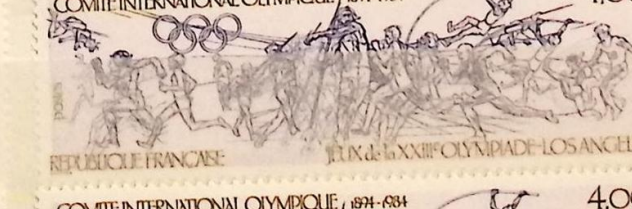 COMITE INTERNATIONAL OLYMPIQUE
REPUBLIQUE FRANÇAISE JEUX de la XXIIIe OLYMPIADE-LOS ANGEL
COMITE INTERNATIONAL OLYMPIQUE / 1894-1984 4.0